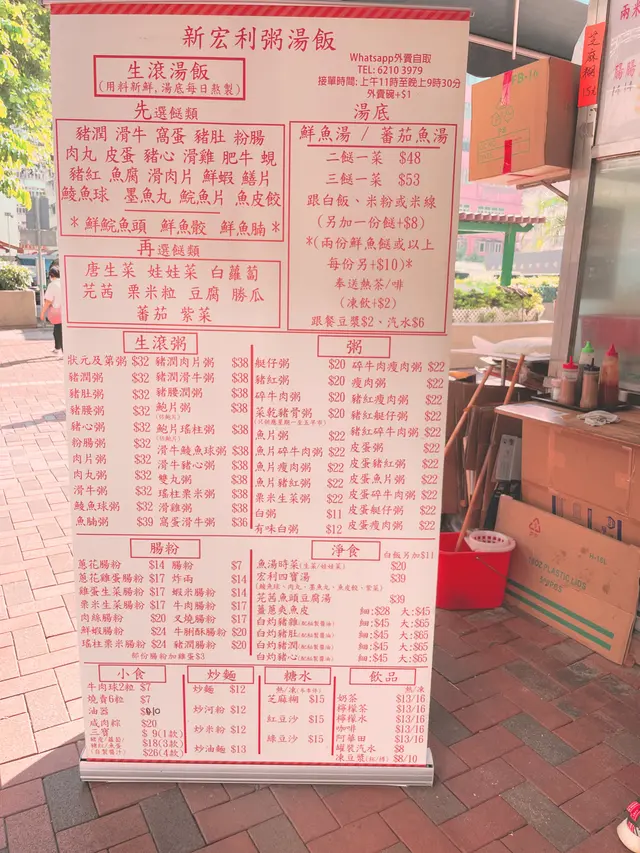 新宏利粥湯飯
生滾湯飯
(用料新鮮,湯底每日熬製)
Whatsapp外賣自取
TEL: 6210 3979
接單時間: 上午11時至晚上9時30分
外賣碗+$1
先選餸類
豬潤 滑牛 窩蛋 豬肚 粉腸
肉丸 皮蛋 豬心 滑雞 肥牛 蜆
豬紅 魚腐 滑肉片 鮮蝦 鱔片
鯪魚球 墨魚丸 鯇魚片 魚皮餃
*鮮鯇魚頭 鮮魚骹 鮮魚腩*
再選餸類
唐生菜 娃娃菜 白蘿蔔
芫茜 栗米粒 豆腐 勝瓜
蕃茄 紫菜
湯底
鮮魚湯 / 蕃茄魚湯
二餸一菜 $48
三餸一菜 $53
跟白飯、米粉或米線
(另加一份餸+$8)
*(兩份鮮魚餸或以上
每份另+$10)*
奉送熱茶/啡
(凍飲+$2)
跟餐豆漿$2、汽水$6
生滾粥
狀元及第粥 $32 豬潤肉片粥 $38
豬潤粥 $32 豬潤滑牛粥 $38
豬肚粥 $32 豬腰潤粥 $38
豬腰粥 $32 鮑片粥 $38
豬心粥 $32 鮑片瑤柱粥 $38
粉腸粥 $32
肉片粥 $32 滑牛鯪魚球粥 $38
肉丸粥 $32 滑牛豬心粥 $38
滑牛粥 $32 雙丸粥 $38
鯪魚球粥 $32 瑤柱栗米粥 $38
滑雞粥 $38
魚腩粥 $39 窩蛋滑牛粥 $36
粥
艇仔粥 $20 碎牛肉瘦肉粥 $22
豬紅粥 $20 瘦肉粥 $22
碎牛肉粥 $20 豬紅瘦肉粥 $22
菜乾豬骨粥 $20 豬紅艇仔粥 $22
(只供應星期一至五早市)
豬紅碎牛肉粥 $22
魚片粥 $22 皮蛋粥 $22
魚片碎牛肉粥 $22 皮蛋豬紅粥 $22
魚片瘦肉粥 $22 皮蛋魚片粥 $22
魚片豬紅粥 $22 皮蛋碎牛肉粥 $22
栗米生菜粥 $22 皮蛋艇仔粥 $22
白粥 $11 皮蛋瘦肉粥 $22
有味白粥 $12
腸粉
蔥花腸粉 $14 腸粉 $7
蔥花雞蛋腸粉 $17 炸兩 $14
雞蛋生菜腸粉 $17 蝦米腸粉 $14
栗米生菜腸粉 $17 牛肉腸粉 $17
肉絲腸粉 $20 叉燒腸粉 $17
鮮蝦腸粉 $24 牛脷酥腸粉 $20
瑤柱栗米腸粉 $24 豬潤腸粉 $20
每份腸粉加雞蛋$3
淨食
白飯另加$11
魚湯時菜(生菜/娃娃菜) $20
宏利四寶湯 $39
(鯪魚球、肉丸、墨魚丸、魚皮餃、紫菜)
芫茜魚頭豆腐湯 $39
薑蔥爽魚皮 細:$28 大:$45
白灼豬雜(配秘製醬油) 細:$45 大:$65
白灼豬肚(配秘製醬油) 細:$45 大:$65
白灼豬潤(配秘製醬油) 細:$45 大:$65
白灼豬心(配秘製醬油) 細:$45 大:$65
小食
牛肉球2粒 $7
燒賣6粒 $7
油器 $10
咸肉粽 $20
三寶 $ 9(1款)
$18(3款)
$26(4款)
炒麵
炒麵 $12
炒河粉 $12
炒米粉 $12
炒油麵 $13
糖水
芝麻糊 $15
紅豆沙 $15
綠豆沙 $15
飲品
熱/凍
奶茶 $13/16
檸檬茶 $13/16
檸檬水 $13/16
咖啡 $13/16
阿華田 $13/16
罐裝汽水 $8
凍豆漿 $8/10
芝麻糊